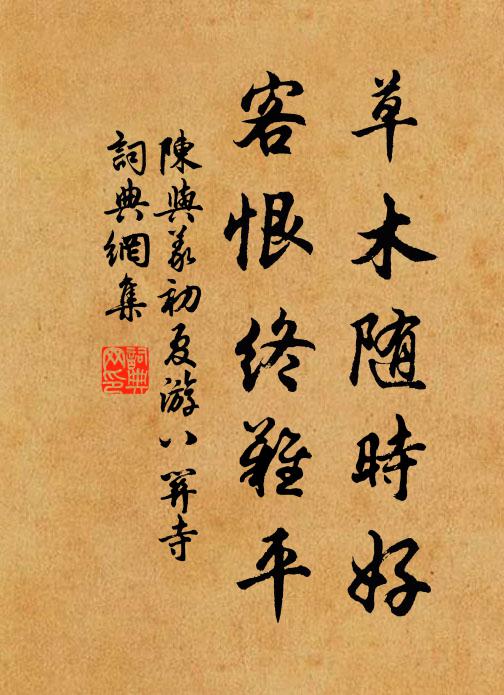 草木随時好
客恨終難平
陳與義初夏游八關寺
詞典網集
詞典網印